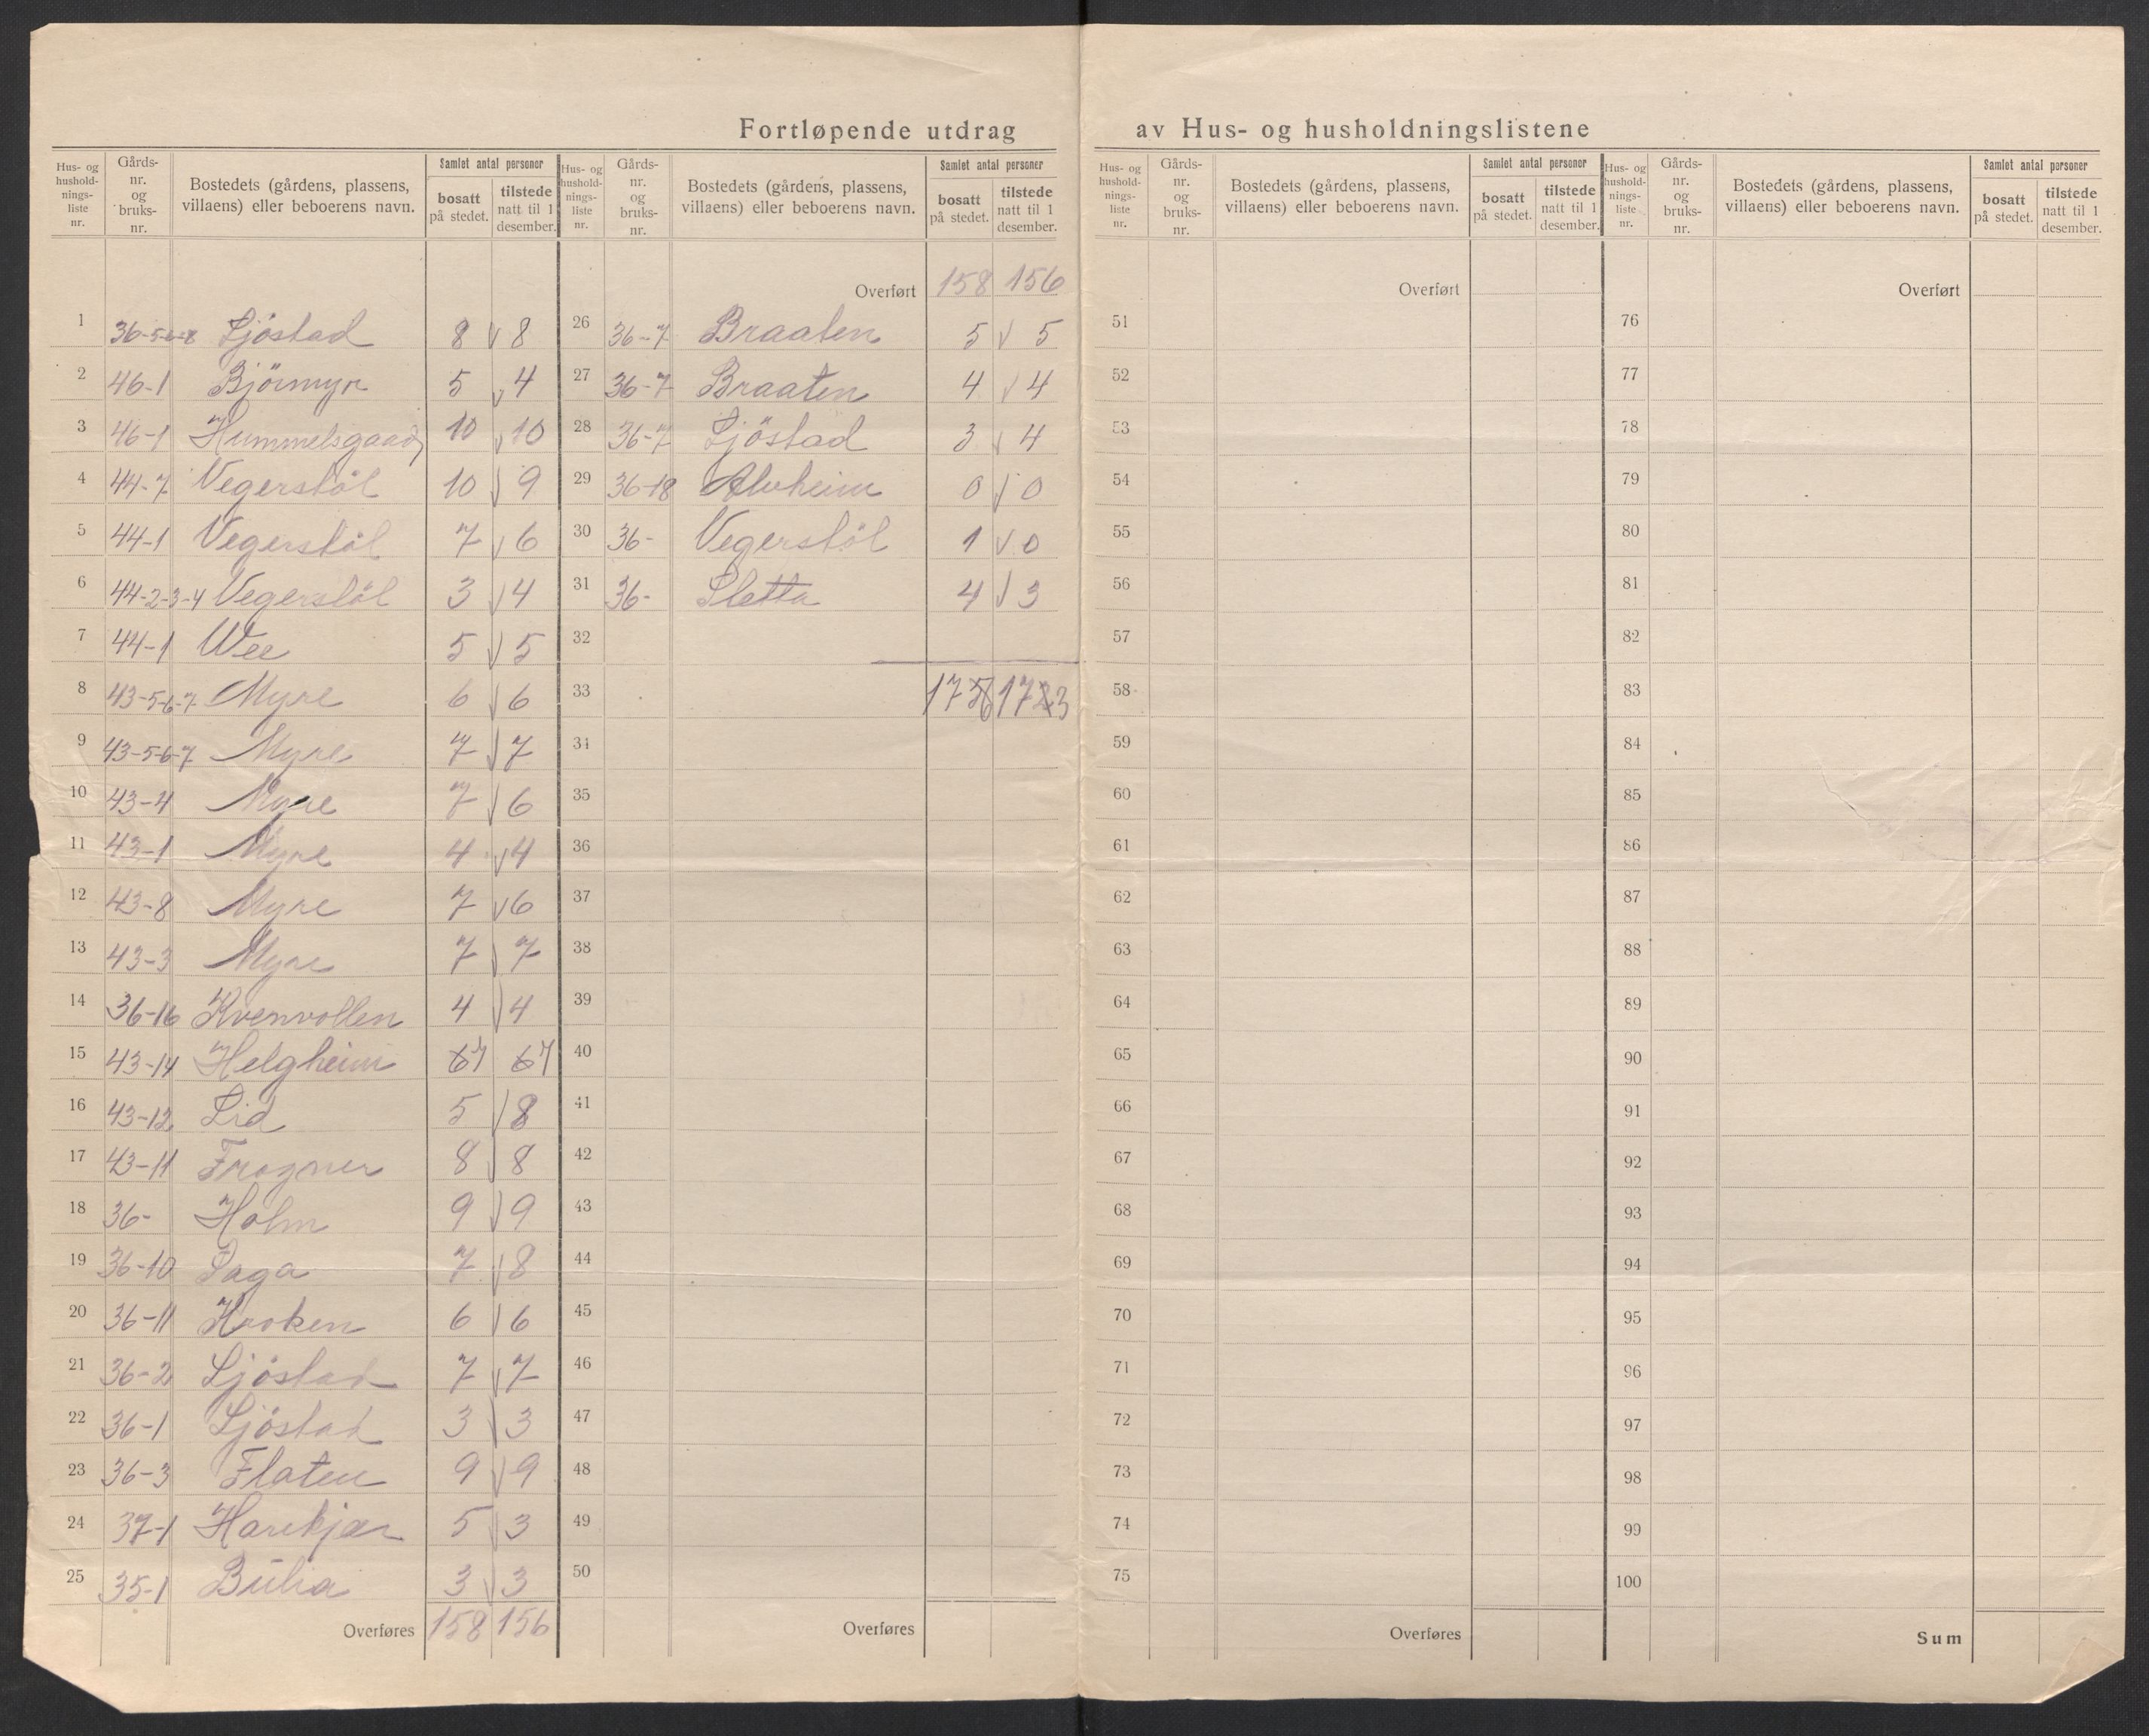 Fortløpende utdrag av Hus- og husholdningslistene
Hus- og hushold-nings-liste nr. Gårds-nr. og bruks-nr. Bostedets (gårdens, plassens, villaens) eller beboerens navn. Samlet antal personer bosatt på stedet. tilstede natt til 1 desember.
1 36-5-6-8 Ljöstad 8 8
2 46-1 Björmyr 5 4
3 46-1 Hummelsgaard 10 10
4 44-7 Vegerstöl 10 9
5 44-1 Vegerstöl 7 6
6 44-2-3-4 Vegerstöl 3 4
7 44-1 Wee 5 5
8 43-5-6-7 Myre 6 6
9 43-5-6-7 Myre 7 7
10 43-4 Myre 7 6
11 43-1 Myre 4 4
12 43-8 Myre 7 6
13 43-3 Myre 7 7
14 36-16 Kvenvollen 4 4
15 43-14 Helgheim 67 67
16 43-12 Lid 5 8
17 43-11 Frogner 8 8
18 36- Holm 9 9
19 36-10 Saga 7 8
20 36-11 Kroken 6 6
21 36-2 Ljöstad 7 7
22 36-1 Ljöstad 3 3
23 36-3 Flaten 9 9
24 37-1 Harekjær 5 3
25 35-1 3 3
Overføres 158 156
Hus- og hushold-nings-liste nr. Gårds-nr. og bruks-nr. Bostedets (gårdens, plassens, villaens) eller beboerens navn. Samlet antal personer bosatt på stedet. tilstede natt til 1 desember.
Overført 158 156
26 36-7 Braaten 5 5
27 36-7 Braaten 4 4
28 36-7 Ljöstad 3 4
29 36-18 Alvheim 0 0
30 36- Vegerstöl 1 0
31 36- Sletta 4 3
32
33 1756 1723
34
35
36
37
38
39
40
41
42
43
44
45
46
47
48
49
50
Overføres
Hus- og hushold-nings-liste nr. Gårds-nr. og bruks-nr. Bostedets (gårdens, plassens, villaens) eller beboerens navn. Samlet antal personer bosatt på stedet. tilstede natt til 1 desember.
Overført
51
52
53
54
55
56
57
58
59
60
61
62
63
64
65
66
67
68
69
70
71
72
73
74
75
Overføres
Hus- og hushold-nings-liste nr. Gårds-nr. og bruks-nr. Bostedets (gårdens, plassens, villaens) eller beboerens navn. Samlet antal personer bosatt på stedet. tilstede natt til 1 desember.
Overført
76
77
78
79
80
81
82
83
84
85
86
87
88
89
90
91
92
93
94
95
96
97
98
99
100
Sum